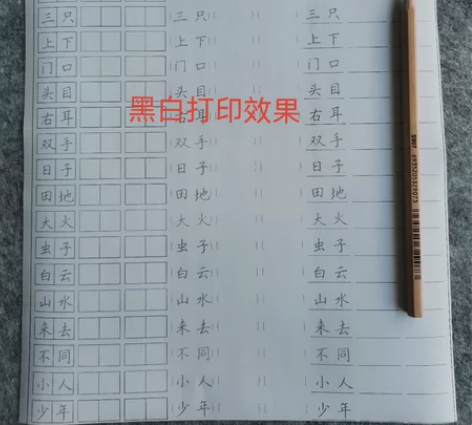 三只 三只 三只
上下 上下 上下
门口 门口 门口
头目 头目 头目
右耳 右耳 右耳
黑白打印效果
双手 双手 双手
日子 日子 日子
田地 田地 田地
大火 大火 大火
虫子 虫子 虫子
白云 白云 白云
山水 山水 山水
来去 来去 来去
不同 不同 不同
小人 小人 小人
少年 少年 少年